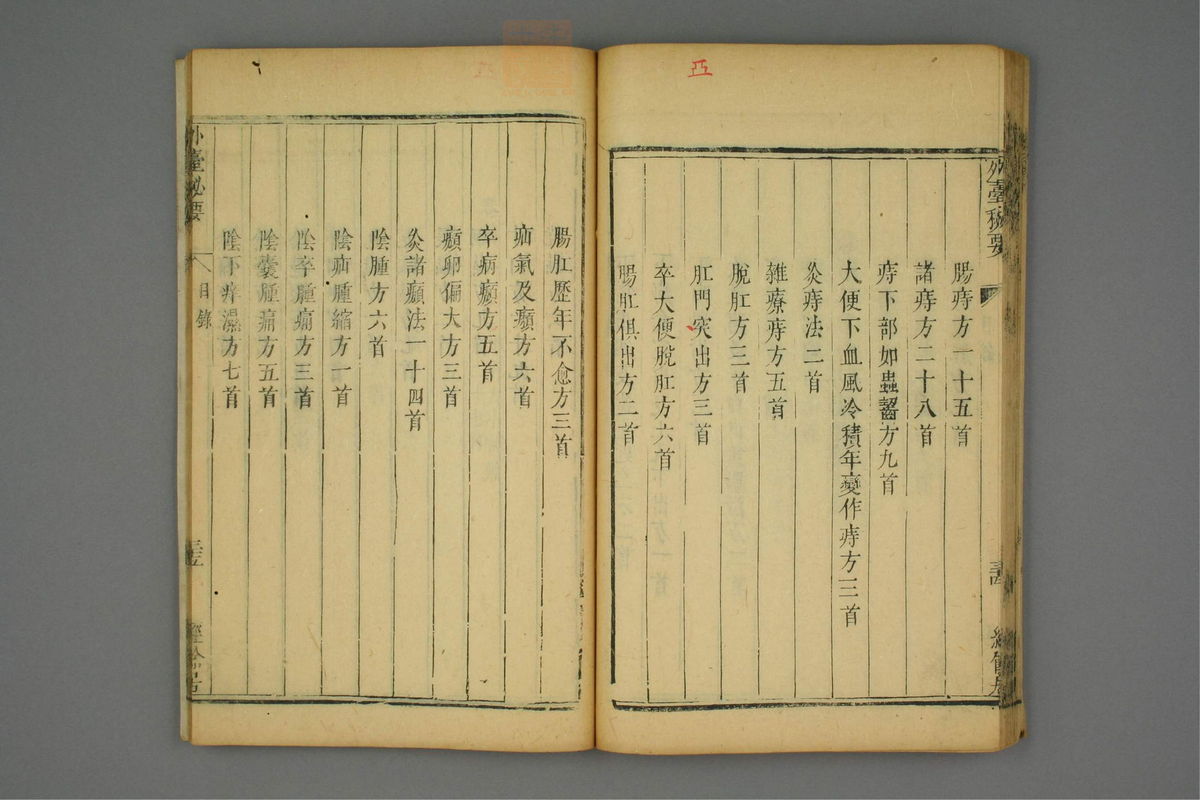 外臺秘要
腸痔方一十五首
諸痔方二十八首
痔下部如蟲齧方九首
大便下血風冷積年變作痔方三首
灸痔法二首
雜療痔方五首
脫肛方三首
肛門突出方三首
卒大便脫肛方六首
腸肛俱出方二首
腸肛歷年不愈方三首
疝氣及㿗方六首
卒病㿗方五首
㿗卵偏大方三首
灸諸㿗法一十四首
陰腫方六首
陰疝腫縮方一首
陰卒腫痛方三首
陰囊腫痛方五首
陰下痒濕方七首
外臺祕要
目錄
經餘居